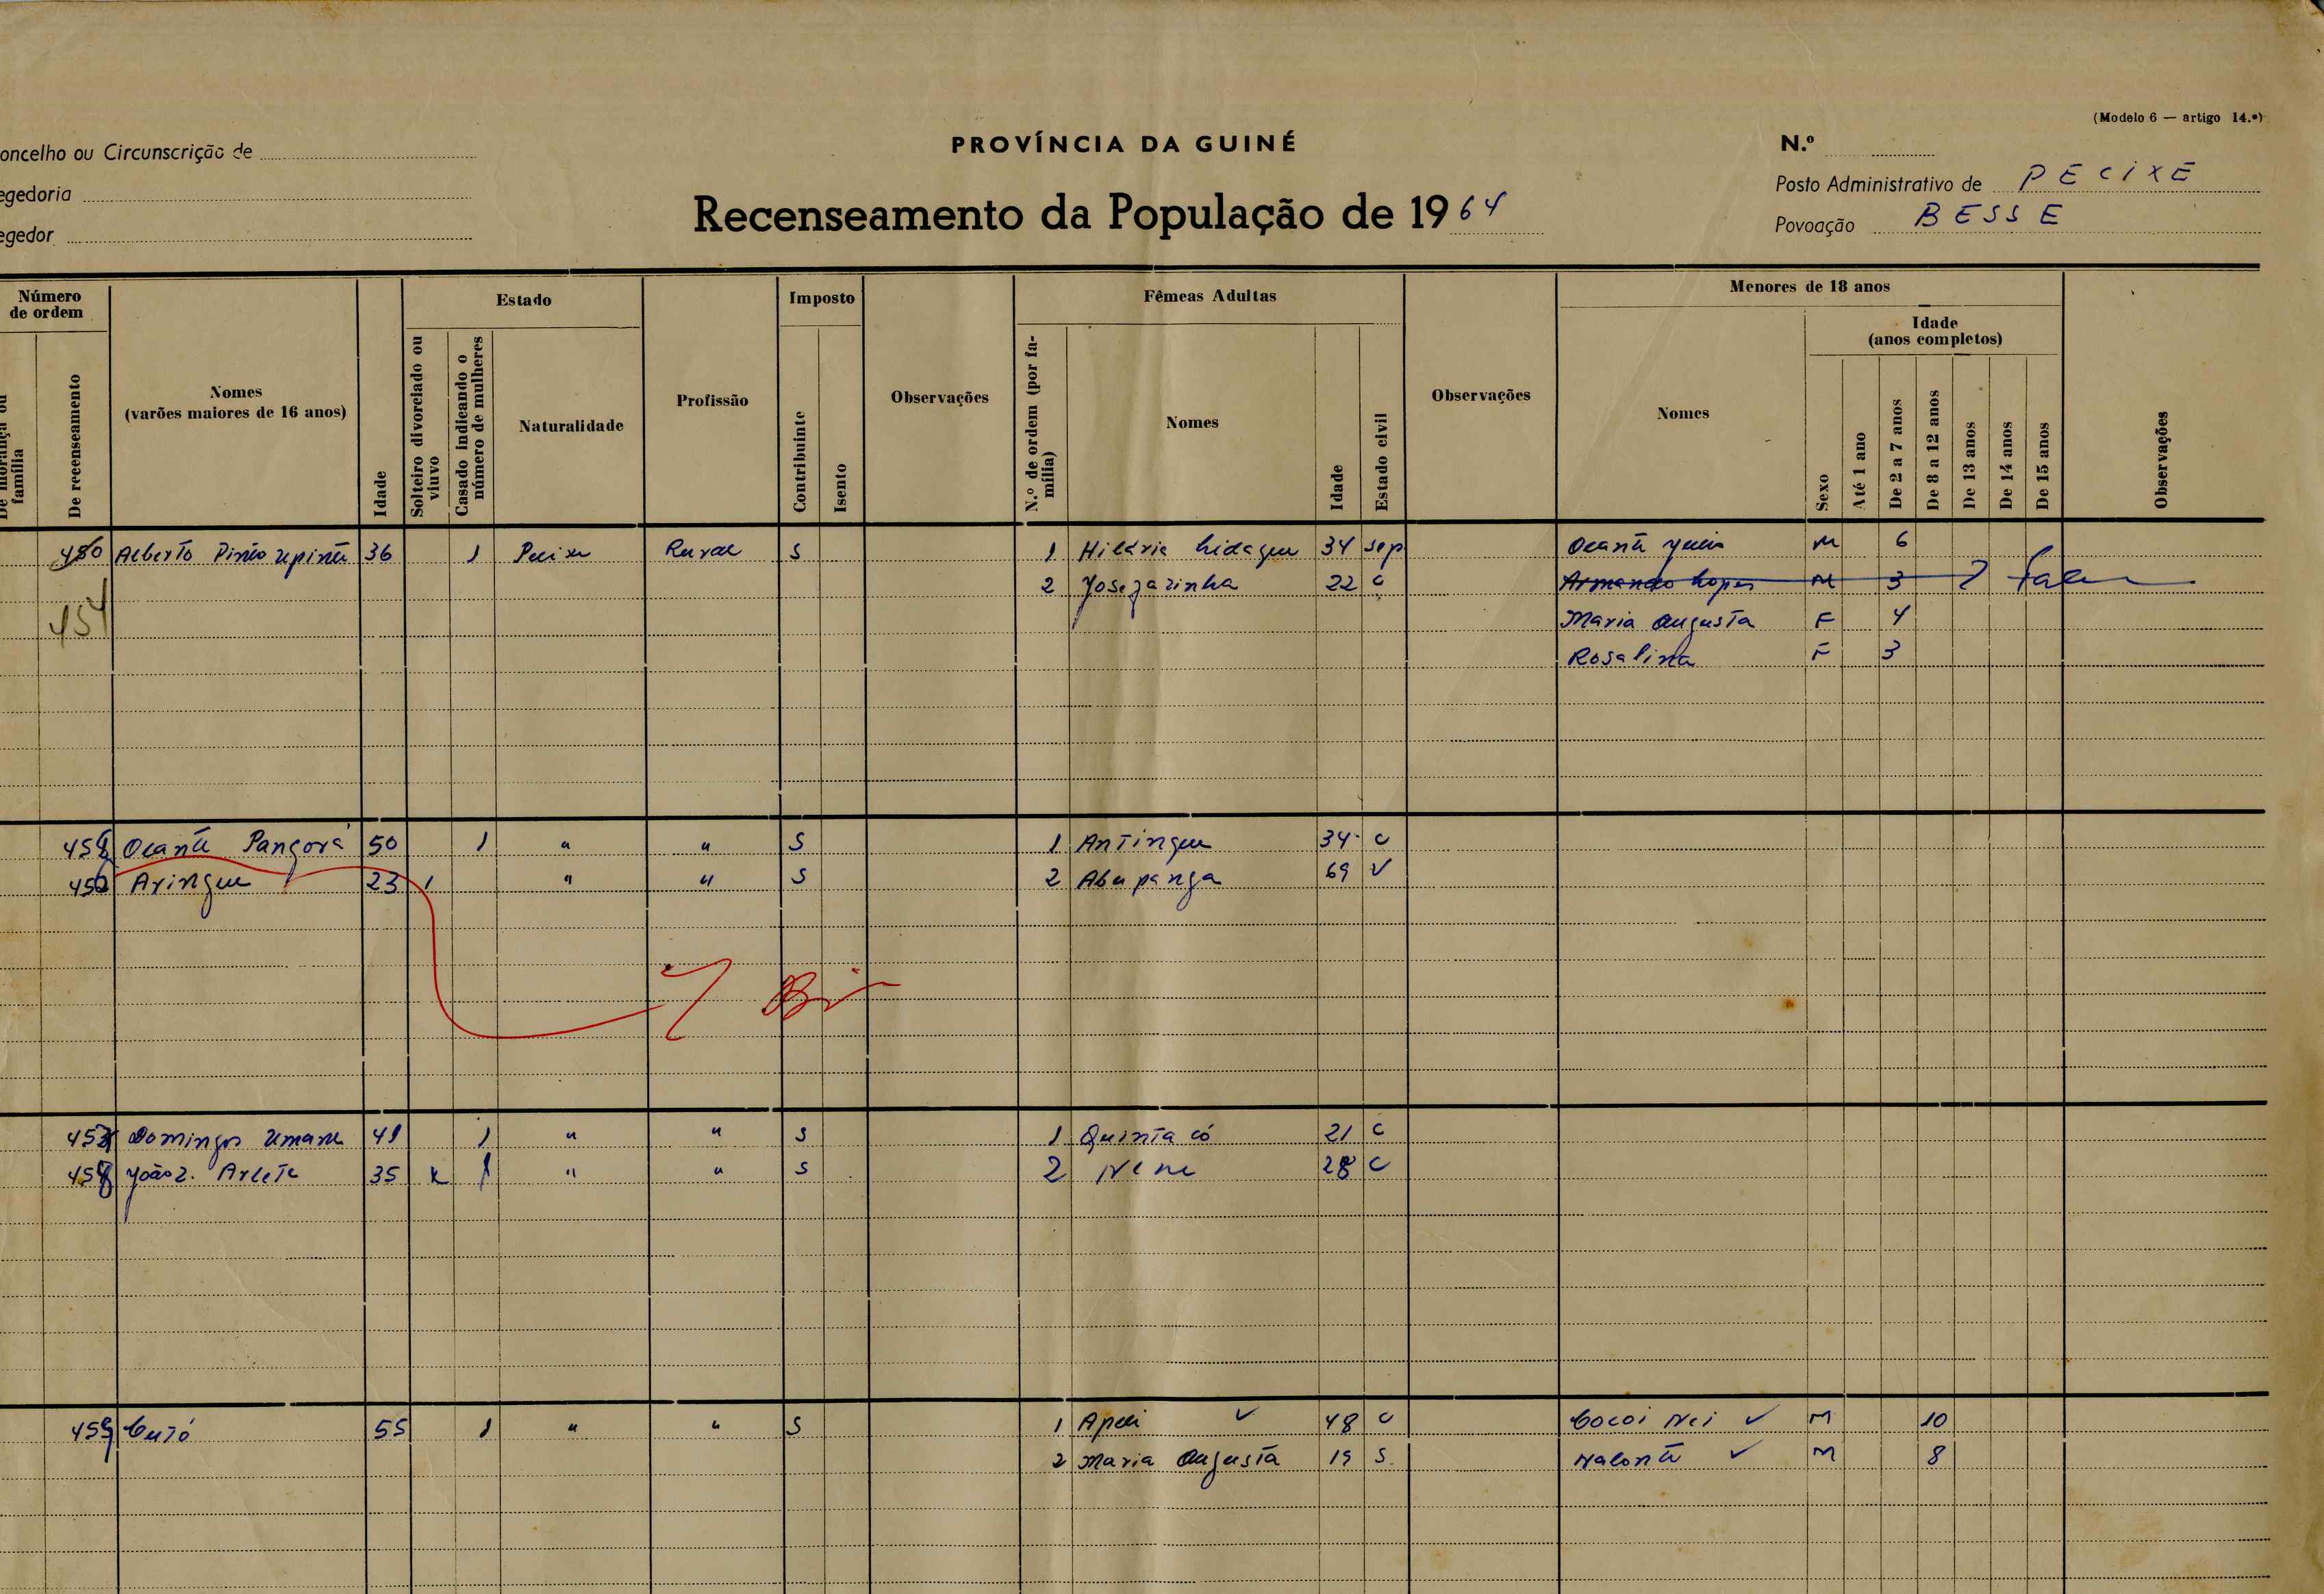 (Modelo 6 — artigo 14.º)
oncelho ou Circunscrição de
PROVÍNCIA DA GUINÉ
N.º
egedoria
Recenseamento da População de 1964
Posto Administrativo de PECIXE
egedor
Povoação BESSE
Número de ordem
Estado
Imposto
Fêmeas Adultas
Menores de 18 anos
Idade
(anos completos)
família
De recenseamento
Nomes
(varões maiores de 16 anos)
Idade
Solteiro divorciado ou viuvo
Casado indicando o número de mulheres
Naturalidade
Profissão
Contribuinte
Isento
Observações
N.º de ordem (por família)
Nomes
Idade
Estado civil
Observações
Nomes
Sexo
Até 1 ano
De 2 a 7 anos
De 8 a 12 anos
De 13 anos
De 14 anos
De 15 anos
Observações
Alberto Pinto 36 1 Pecixe Rural S 1 Hilária 34 sep M 6
2 Josefazinha 22 C Armando Lopes M 3
Maria Augusta F 4
Rosalina F 3
Ocanté Pangorá 50 1 " " S 1 Antingue 34 C
Aringue 23 1 " " S 2 Abupanga 69 V
Domingos Umane 41 1 " " S 1 Quinta có 21 C
João Z. Arlete 35 x 1 " " S 2 Nene 28 C
459 55 1 " " S 1 48 C M 10
2 Maria Augusta 19 S M 8